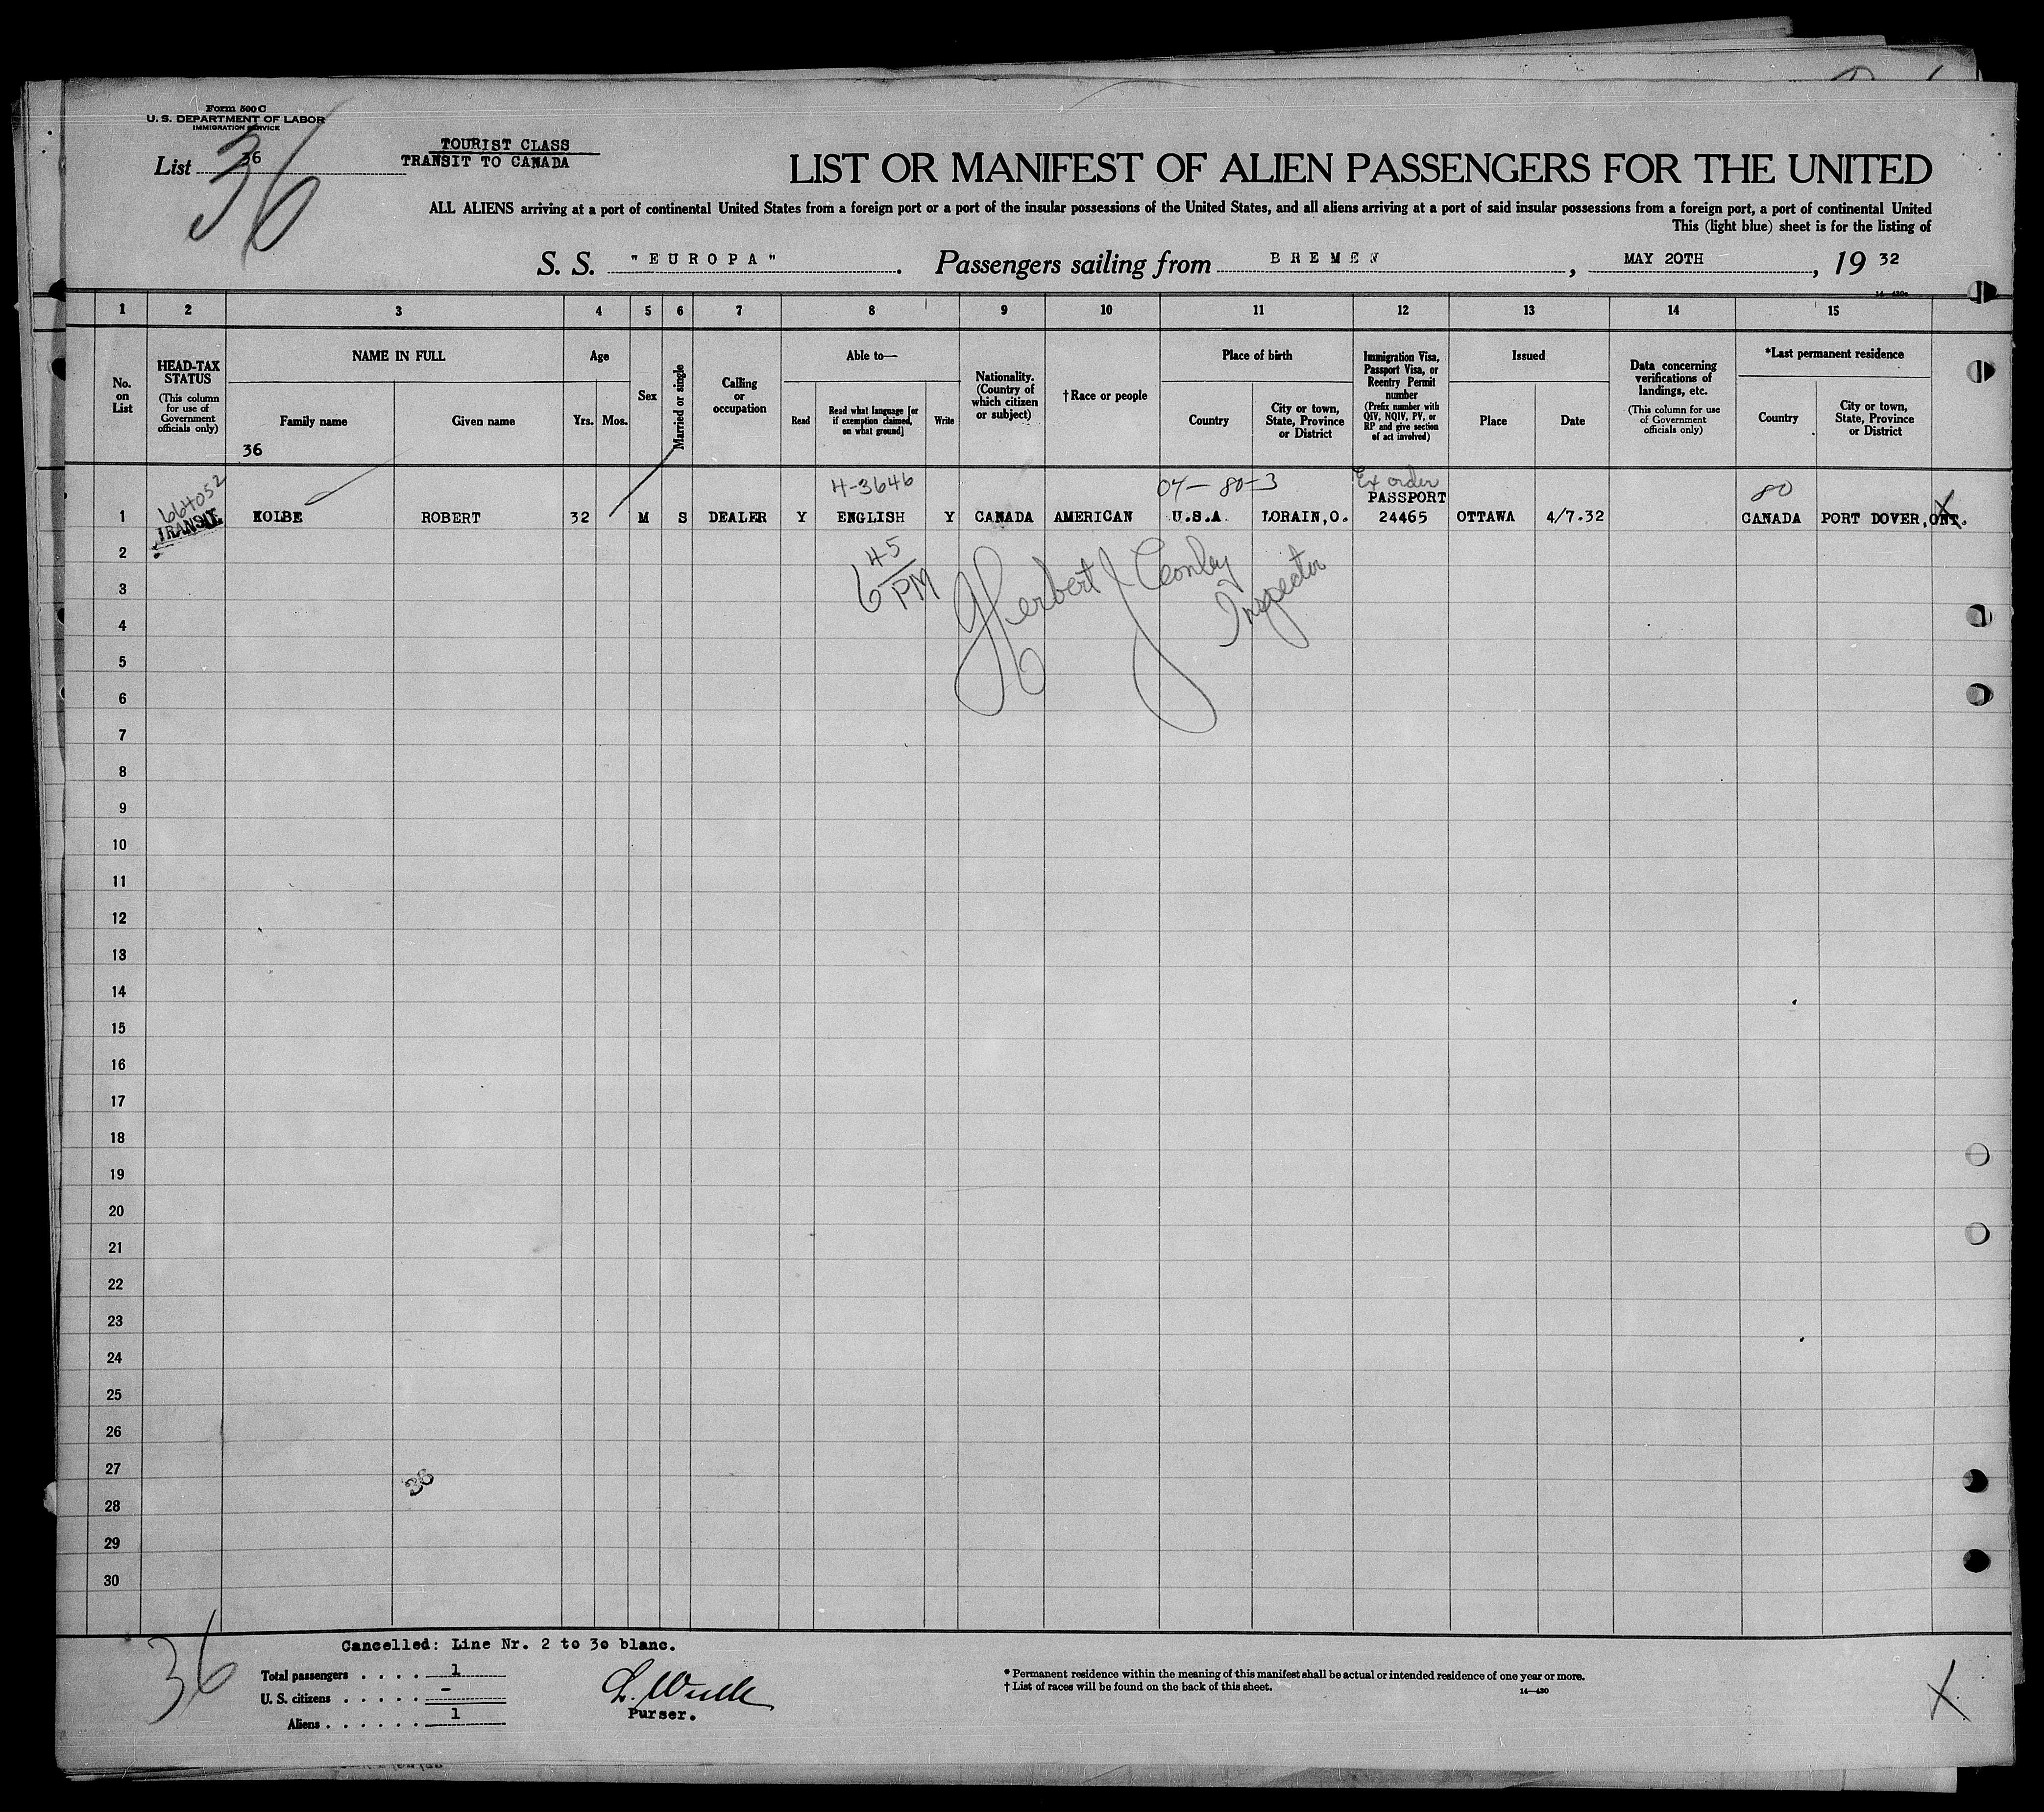 Form 500 C
U. S. DEPARTMENT OF LABOR
IMMIGRATION SERVICE
List 36
36
TOURIST CLASS
TRANSIT TO CANADA
LIST OR MANIFEST OF ALIEN PASSENGERS FOR THE UNITED
ALL ALIENS arriving at a port of continental United States from a foreign port or a port of the insular possessions of the United States, and all aliens arriving at a port of said insular possessions from a foreign port, a port of continental United
This (light blue) sheet is for the listing of
S. S. "EUROPA". Passengers sailing from BREMEN, MAY 20TH, 19 32
1 2 3 4 5 6 7 8 9 10 11 12 13 14 15
No. on List
HEAD-TAX STATUS
(This column for use of Government officials only)
NAME IN FULL
Family name
Given name
36
Age
Yrs. Mos.
Sex
Married or single
Calling or occupation
Able to—
Read
Read what language [or if exemption claimed, on what ground]
Write
Nationality. (Country of which citizen or subject)
†Race or people
Place of birth
Country
City or town, State, Province or District
Immigration Visa, Passport Visa, or Reentry Permit number
(Prefix number with QIV, NQIV, PV, or RP and give section of act involved)
Issued
Place
Date
Data concerning verifications of landings, etc.
(This column for use of Government officials only)
*Last permanent residence
Country
City or town, State, Province or District
664052
TRANSIT
4-3646
04-80-3
Ex order
PASSPORT
80
1 KOLBE ROBERT 32 M S DEALER Y ENGLISH Y CANADA AMERICAN U.S.A. LORAIN,O. 24465 OTTAWA 4/7.32 CANADA PORT DOVER,ONT.
X
6 45 PM
Herbert J Conley
Inspector
2
3
4
5
6
7
8
9
10
11
12
13
14
15
16
17
18
19
20
21
22
23
24
25
26
27
36
28
29
30
36
Cancelled: Line Nr. 2 to 30 blanc.
Total passengers . . . . 1
U. S. citizens . . . . . -
Aliens . . . . . . 1
Purser.
* Permanent residence within the meaning of this manifest shall be actual or intended residence of one year or more.
† List of races will be found on the back of this sheet.
14—430
X